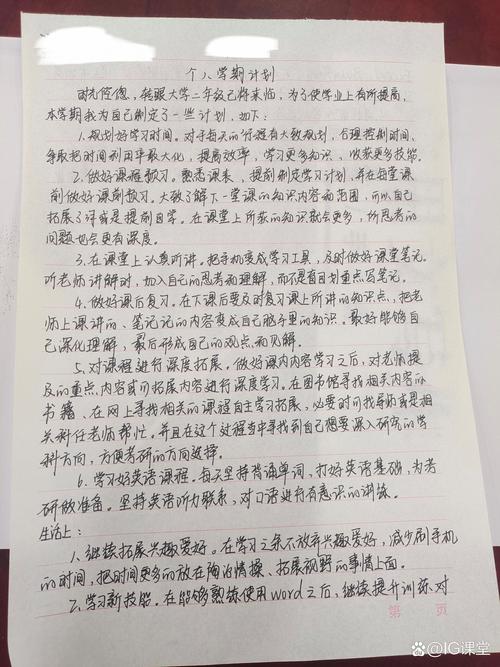 个人学期计划
时光荏苒，转眼大学二年级已将来临，为了使学业上有所提高，
本学期我为自己制定了一些计划，如下：
1.规划好学习时间。对于每天的行程有大致规划，合理控制时间，
争取把时间利用率最大化，提高效率，学习更多知识、收获更多技能。
2.做好课程预习。熟悉课表、提前制定学习计划，并在每堂课
前做好课前预习。大致了解下一堂课的知识内容和范围，可以自己
拓展了详或是提前自学。在课堂上所获的知识就会更多，所思考的
问题也会更有深度。
3.在课堂上认真听讲。把手机变成学习工具，及时做好课堂笔记。
听老师讲解时，加入自己的思考和理解，而不是盲目划重点写笔记。
4.做好课后复习。在下课后要及时复习课上所讲的知识点，把老
师上课讲的、笔记记的内容变成自己脑子里的知识。最好能够自
己深化理解，最后形成自己的观点和见解。
5.对课程进行深度拓展。做好课内内容学习之后，对老师提
及的重点内容或可拓展内容进行深度学习。在图书馆寻找相关内容的
书籍、在网上寻找相关的课程自主学习拓展，必要时可找导师或是相
关科任老师帮忙。并且在这个过程当中寻找到自己想要深入研究的学
科方向，方便考研的方向选择。
6.学习好英语课程。每天坚持背诵单词，打好英语基础，为考
研做准备。坚持英语听力联系，对口语进行有意识的训练。
生活上：
1.继续拓展兴趣爱好。在学习之余不放弃兴趣爱好，减少刷手机
的时间，把时间更多的放在陶冶情操、拓展视野的事情上面。
2.学习新技能。在能够熟练使用word之后，继续提升训练对
第 页
@IG课堂